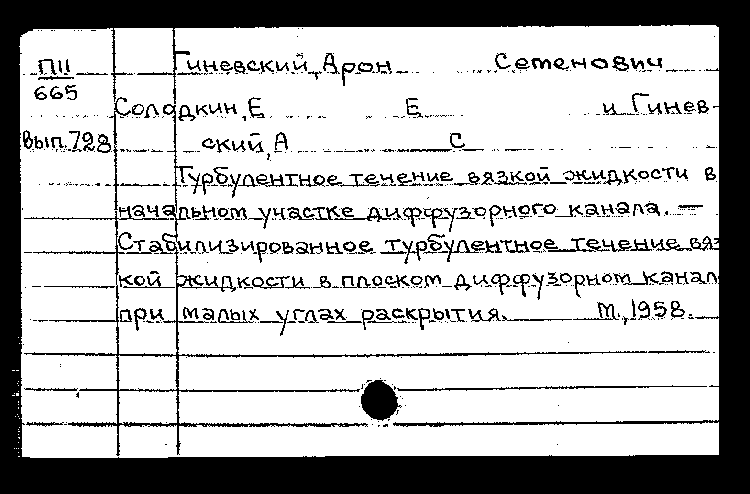 ПII Гиневский, Арон Семенович
665
Солодкин, Е Е и Гинев-
Вып. 728 ский, А С
Турбулентное течение вязкой жидкости в
начальном участке диффузорного канала. —
Стабилизированное турбулентное течение вяз
кой жидкости в плоском диффузорном канал
при малых углах раскрытия. М., 1958.